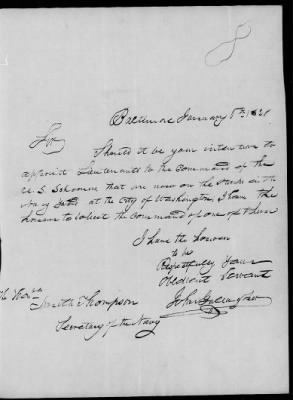 8
Baltimore January 8th 1821
Sir
Should it be your intention to
appoint Lieutenants to the Command of the
U.S. Schooners that are now on the Stocks in the
Navy Yard at the City of Washington, I have the
honour to solicit the Command of one of them
I have the honour
to be
Respectfully Your
Obedient Servant
John Gallagher
The Honble
Smith Thompson
Secretary of the Navy